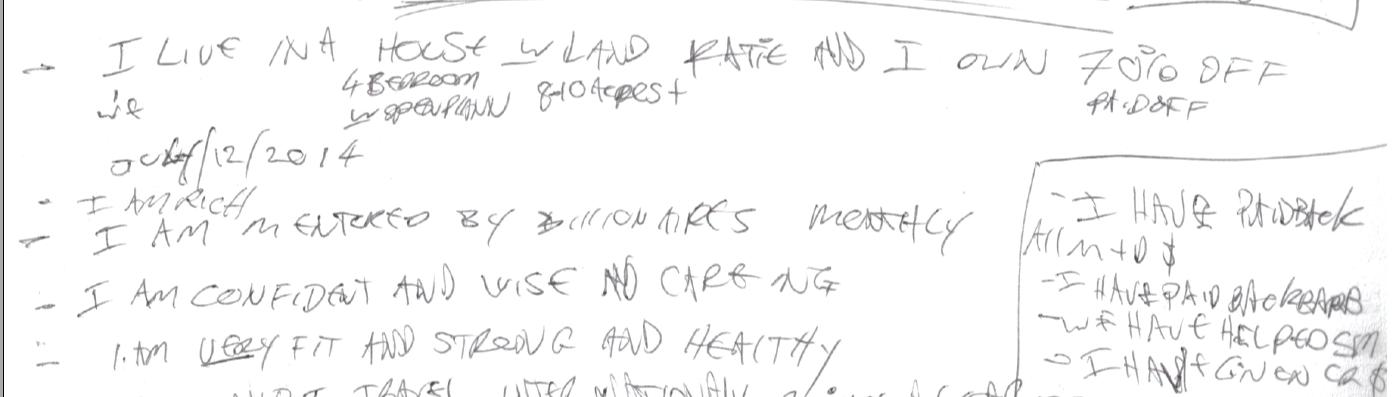 - I LIVE IN A HOUSE W LAND KATIE AND I OWN 70% OFF
we 4 BEDROOM 8-10 Acres+ PAID OFF
W OPEN PLANN
/12/2014
- I AM RICH
- I AM MENTORED BY BILLIONAIRES MONTHLY
- I AM CONFIDENT AND WISE AND CAREING
- I AM VERY FIT AND STRONG AND HEALTHY
I TRAVEL INTERNATIONALLY
- I HAVE PAID BACK
All M + D $
- I HAVE PAID BACK
- WE HAVE HELPED
- I HAVE GIVEN